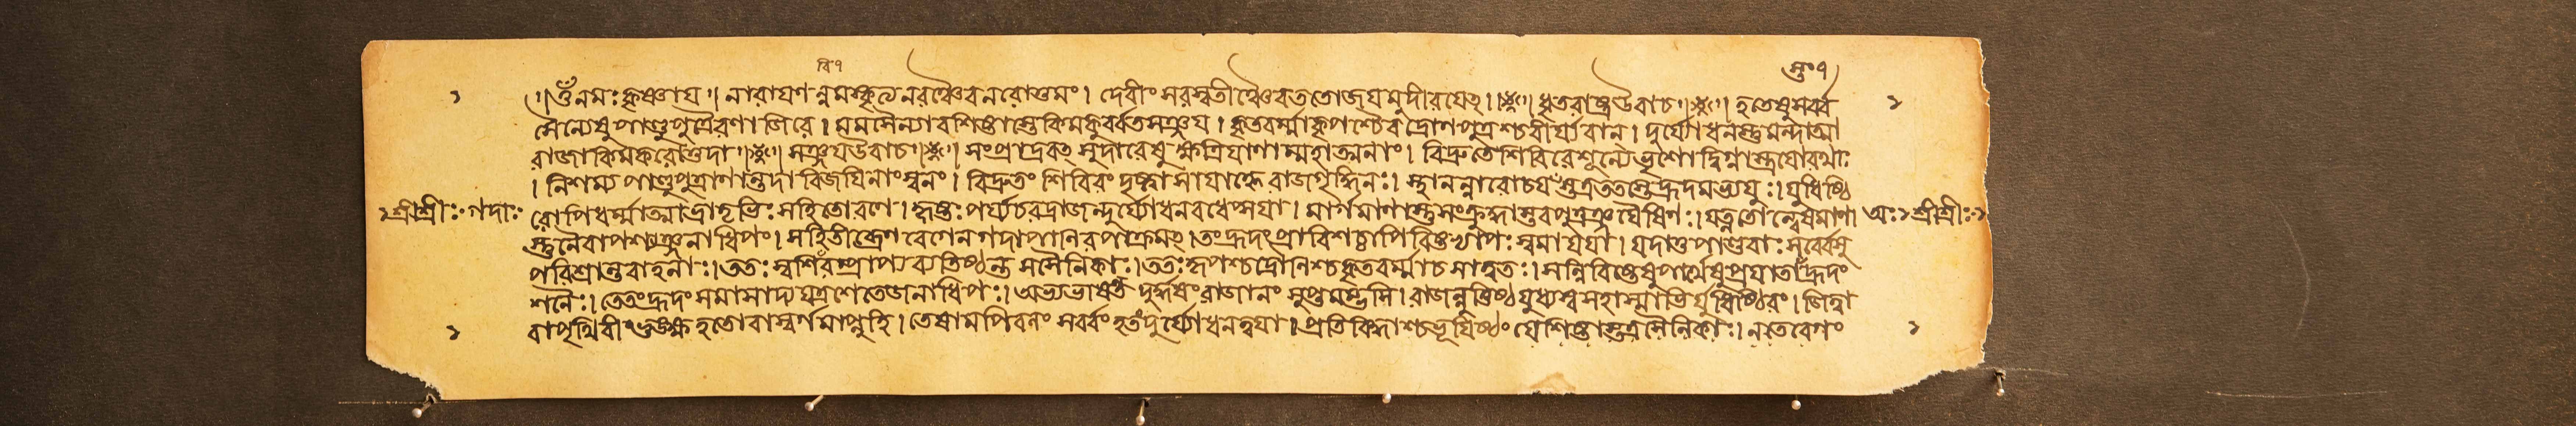 বি১ সুঃ১
১ ।ওঁনমঃকৃষ্ণায়।নারায়ণন্নমস্কৃত্যনরঞ্চৈবনরোত্তমং। দেবীং সরস্বতীঞ্চৈবততোজয়মুদীরয়েৎ।।ধৃতরাষ্ট্রউবাচ।।হতেষুসর্ব্ব ১
সৈন্যেষুপাণ্ডুপুত্রৈরণাজিরে। মমসৈন্যাবশিষ্টাস্তেকিমকুর্ব্বতসঞ্জয়। কৃতবর্ম্মাকৃপশ্চৈবদ্রোণপুত্রশ্চবীর্য্যবান্। দুর্য্যোধনস্তুমন্দাত্মা
রাজাকিমকরোত্তদা।।সঞ্জয়উবাচ।।সংপ্রাদ্রবৎসুদারেষুক্ষত্রিয়াণাম্মহাত্মনাং। বিদ্রুতেশিবিরেশূন্যেভৃশোদ্বিগ্নাস্ত্রয়োরথাঃ
।নিশম্যপাণ্ডুপুত্রাণান্তদাবিজয়িনাংস্বনং। বিদ্রুতং শিবিরং দৃষ্ট্বাসায়াহ্নেরাজগৃদ্ধিনঃ। স্থানন্নারোচয়ংস্তত্রততস্তেহ্রদমভ্যয়ুঃ।যুধিষ্ঠি
১শ্রীশ্রীঃ গদাঃ রোপিধর্ম্মাত্মাভ্রাতৃভিঃসহিতোরণে।হৃষ্টঃপর্য্যচরদ্রাজন্দুর্য্যোধনবধেপ্সয়া। মার্গমাণাস্তুসংক্রুদ্ধাস্তবপুত্রঞ্জয়ৈষিণঃ।যত্নতোন্বেষমাণা অঃ১শ্রীশ্রীঃ১
স্তুনৈবাপশ্যঞ্জনাধিপং। সহিতীব্রেণবেগেনগদাপাণিরপাক্রমৎ।তংহ্রদংপ্রাবিশচ্চাপিবিষ্টভ্যাপঃস্বমায়য়া। যদাতুপাণ্ডবাঃসর্ব্বেসু
পরিশ্রান্তবাহনাঃ।ততঃস্বশিবিরংপ্রাপ্যব্যতিষ্ঠন্তসসৈনিকাঃ।ততঃকৃপশ্চদ্রৌণিশ্চকৃতবর্ম্মাচসাত্বতঃ।সন্নিবিষ্টেষুপার্থেষুপ্রয়াতাস্তংহ্রদং
শনৈঃ।তেতংহ্রদংসমাসাদ্যযত্রশেতেজনাধিপঃ। অভ্যভাষন্তদুর্দ্ধর্ষংরাজানংসুপ্তমম্ভসি। রাজন্নুত্তিষ্ঠযুধ্যস্বসহাস্মাভির্যুধিষ্ঠিরং। জিত্বা
১ বাপৃথিবীংভুঙ্ক্ষ্বহতোবাস্বর্গমাপ্নুহি। তেষামপিবলংসর্ব্বংহতংদুর্য্যোধনত্বয়া। প্রতিবিদ্ধাশ্চভূয়িষ্ঠংযেশিষ্টাস্তত্রসৈনিকাঃ। নতেবেগং ১